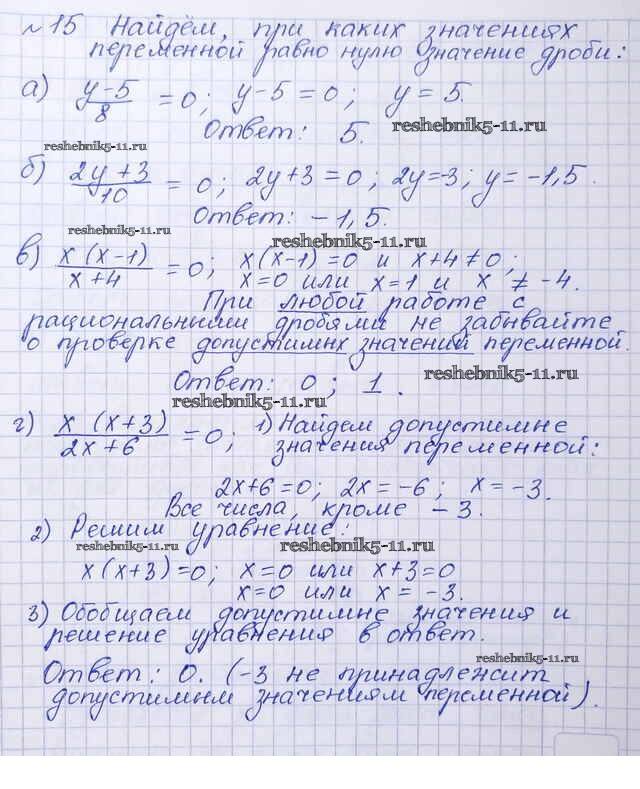 №15 Найдём, при каких значениях
переменной равно нулю значение дроби:
а) (y-5)/8 = 0; y-5=0; y=5.
Ответ: 5. reshebnik5-11.ru
reshebnik5-11.ru
б) (2y+3)/10 = 0; 2y+3=0; 2y=-3; y=-1,5.
Ответ: -1,5.
reshebnik5-11.ru
reshebnik5-11.ru
в) (x(x-1))/(x+4) = 0; x(x-1)=0 и x+4≠0;
x=0 или x=1 и x≠-4.
При любой работе с
рациональными дробями не забывайте
о проверке допустимих значений переменной.
Ответ: 0; 1. reshebnik5-11.ru
reshebnik5-11.ru
г) (x(x+3))/(2x+6) = 0; 1) Найдем допустимие
значения переменной:
2x+6=0; 2x=-6; x=-3.
Все числа, кроме -3.
2) Решим уравнение:
reshebnik5-11.ru reshebnik5-11.ru
x(x+3)=0; x=0 или x+3=0
x=0 или x=-3.
3) Обобщаем допустимие значения и
решение уравнения в ответ.
reshebnik5-11.ru
Ответ: 0. (-3 не принадлежит
допустимым значениям переменной).